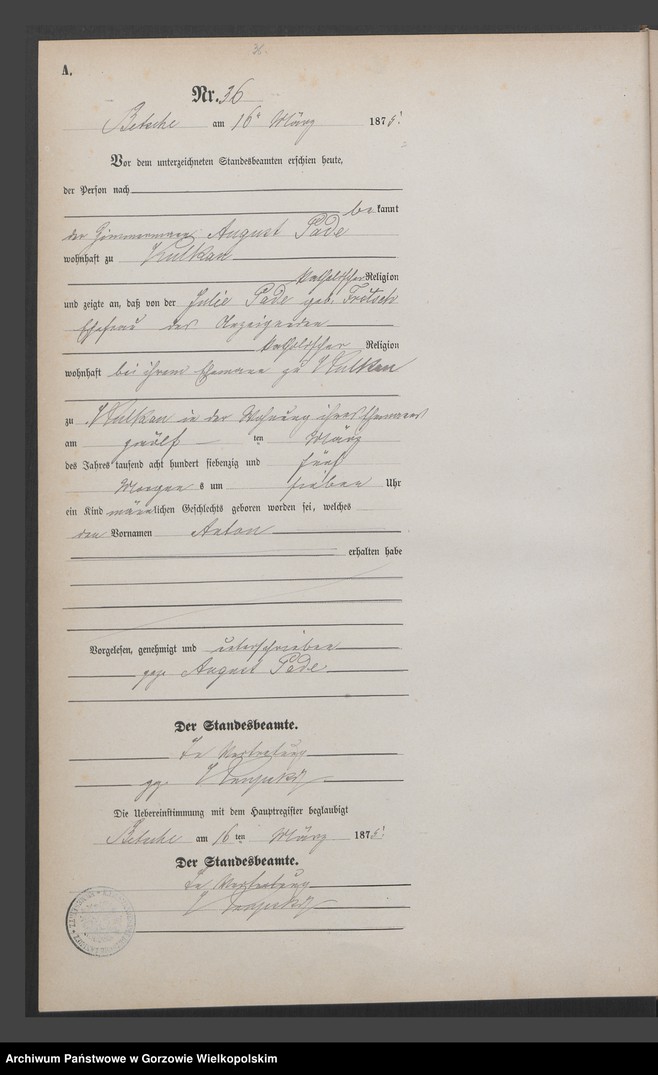 36.
A.
Nr. 36
Betsche am 16ᵗ März 1875.
Vor dem unterzeichneten Standesbeamten erschien heute,
der Person nach
bekannt
der Zimmermann August Pade
wohnhaft zu Kulkau
katholischer Religion
und zeigte an, daß von der Julie Pade geb. Fritsch
Ehefrau des Anzeigenden
katholischer Religion
wohnhaft bei ihrem Ehemanne zu Kulkau
zu Kulkau in der Wohnung ihres Ehemannes
am zwölf ten März
des Jahres tausend acht hundert siebenzig und fünf
Morgens um sieben Uhr
ein Kind männlichen Geschlechts geboren worden sei, welches
den Vornamen Anton
erhalten habe
Vorgelesen, genehmigt und unterschrieben
gez. August Pade
Der Standesbeamte.
In Vertretung
gez.
Die Uebereinstimmung mit dem Hauptregister beglaubigt
Betsche am 16 ten März 1875.
Der Standesbeamte.
In Vertretung
Archiwum Państwowe w Gorzowie Wielkopolskim